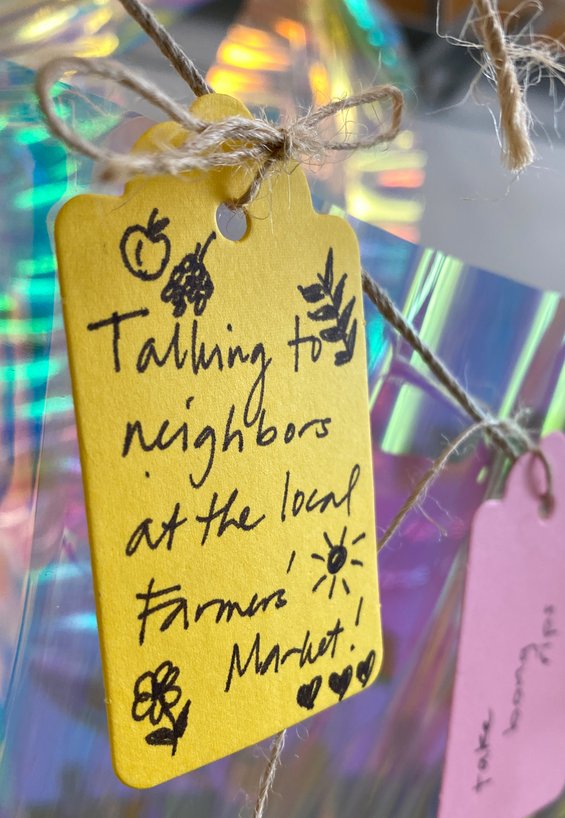 Talking to
neighbors
at the local
Farmers'
Market!
take
bong
rips